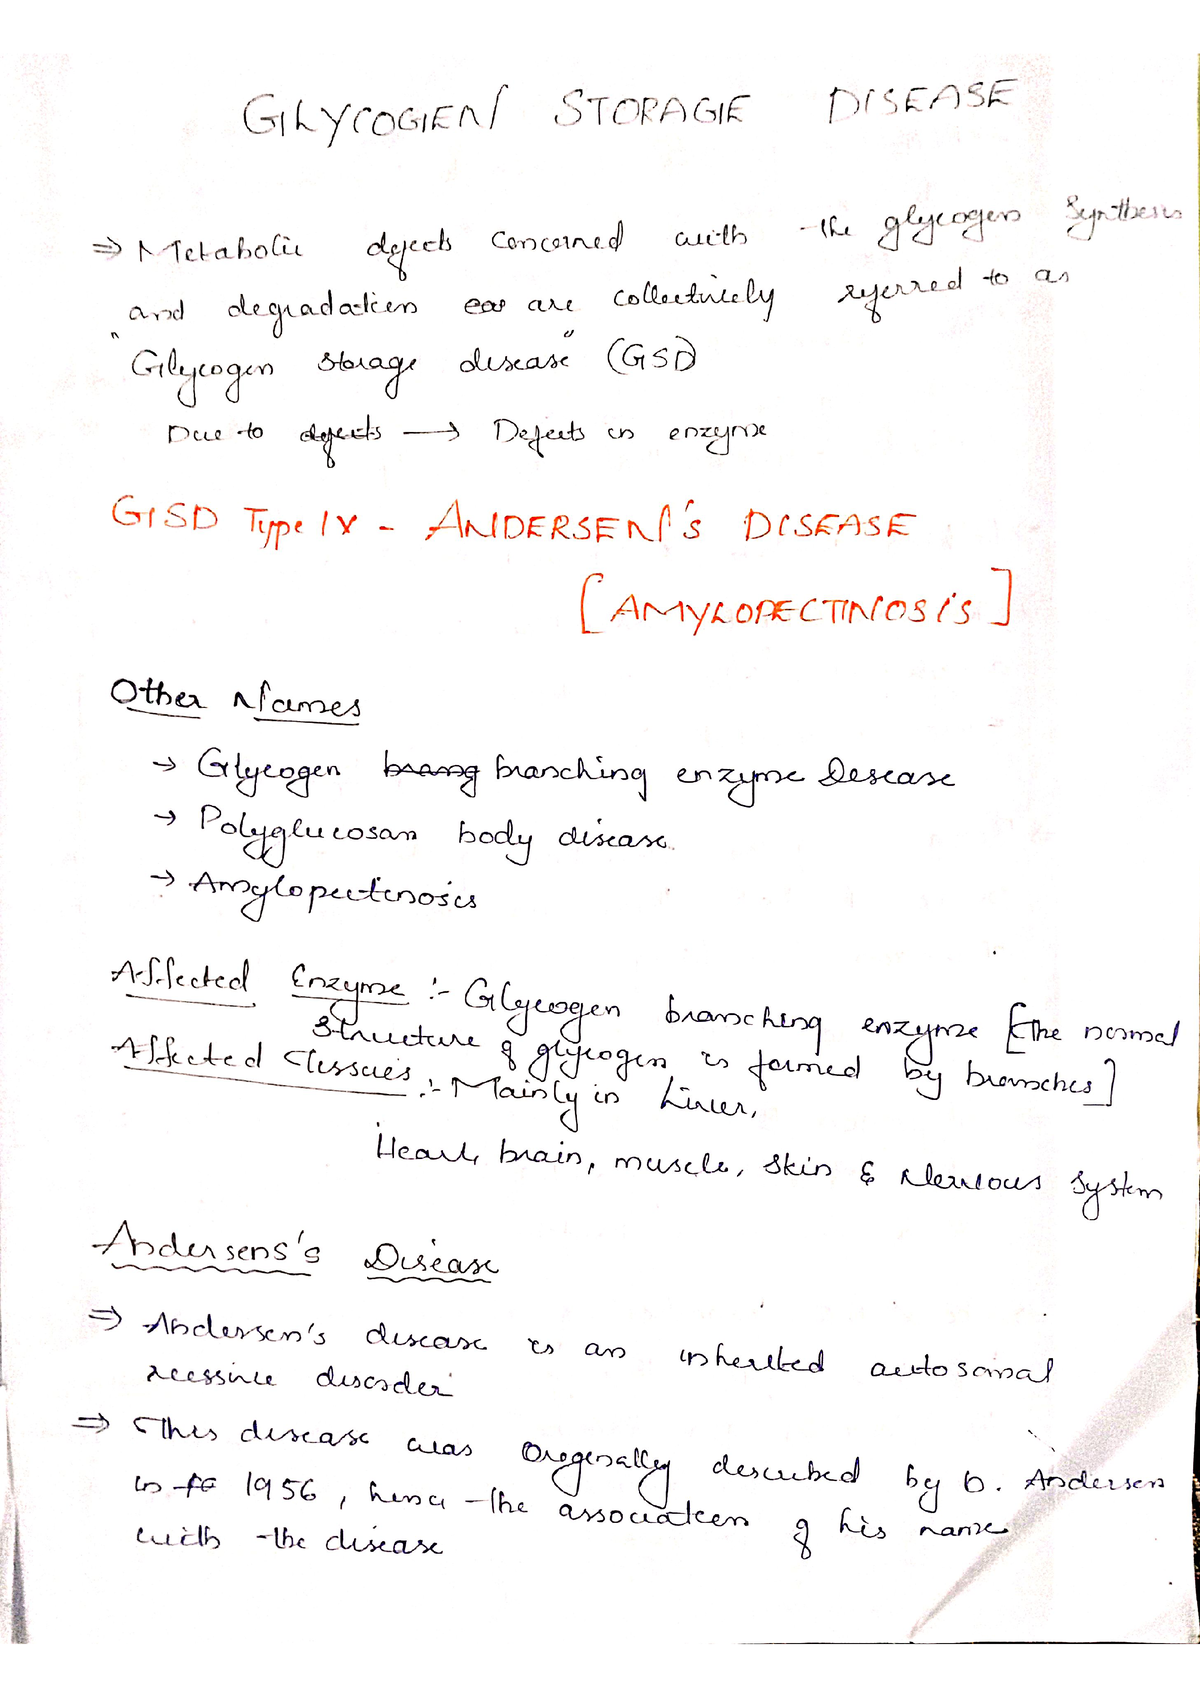 GLYCOGEN STORAGE DISEASE
⇒ Metabolic defects concerned with the glycogen synthesis
and degradation are collectively referred to as
"Glycogen storage disease" (GSD)
Due to defects → Defects in enzyme
GSD Type IV - ANDERSEN's DISEASE
[AMYLOPECTINOSIS]
Other Names
→ Glycogen brang branching enzyme Disease
→ Polyglucosan body disease.
→ Amylopectinosis
Affected Enzyme :- Glycogen branching enzyme [The normal
structure of glycogen is formed by branches]
Affected Tissues :- Mainly in Liver,
Heart, brain, muscle, skin & Nervous system
Andersens's Disease
⇒ Andersen's disease is an inherited autosomal
recessive disorder
⇒ This disease was originally described by D. Andersen
in 1956, hence the association of his name
with the disease